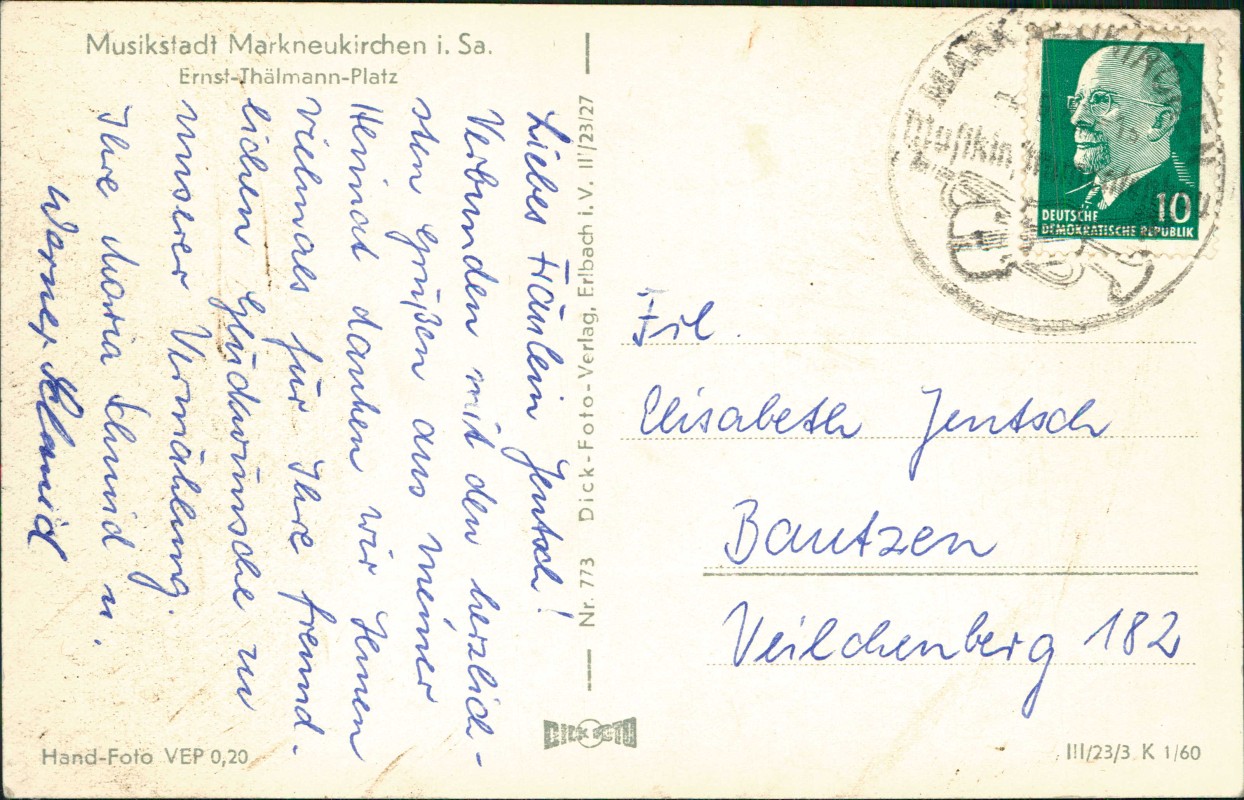 Musikstadt Markneukirchen i. Sa.
Ernst-Thälmann-Platz
Liebes Fräulein Jentsch!
Verbunden mit den herzlich-
sten Grüßen aus meiner
Heimat danken wir Ihnen
vielmals für Ihre freund-
lichen Glückwünsche zu
unserer Vermählung.
Ihre Maria Schmid u.
Werner Schmid
Hand-Foto VEP 0,20
Nr. 773 Dick-Foto-Verlag, Erlbach i. V. III/23/27
DICK FOTO
MARKNEUKIRCHEN
DEUTSCHE
DEMOKRATISCHE REPUBLIK
10
Frl.
Elisabeth Jentsch
Bautzen
Veilchenberg 182
III/23/3 K 1/60